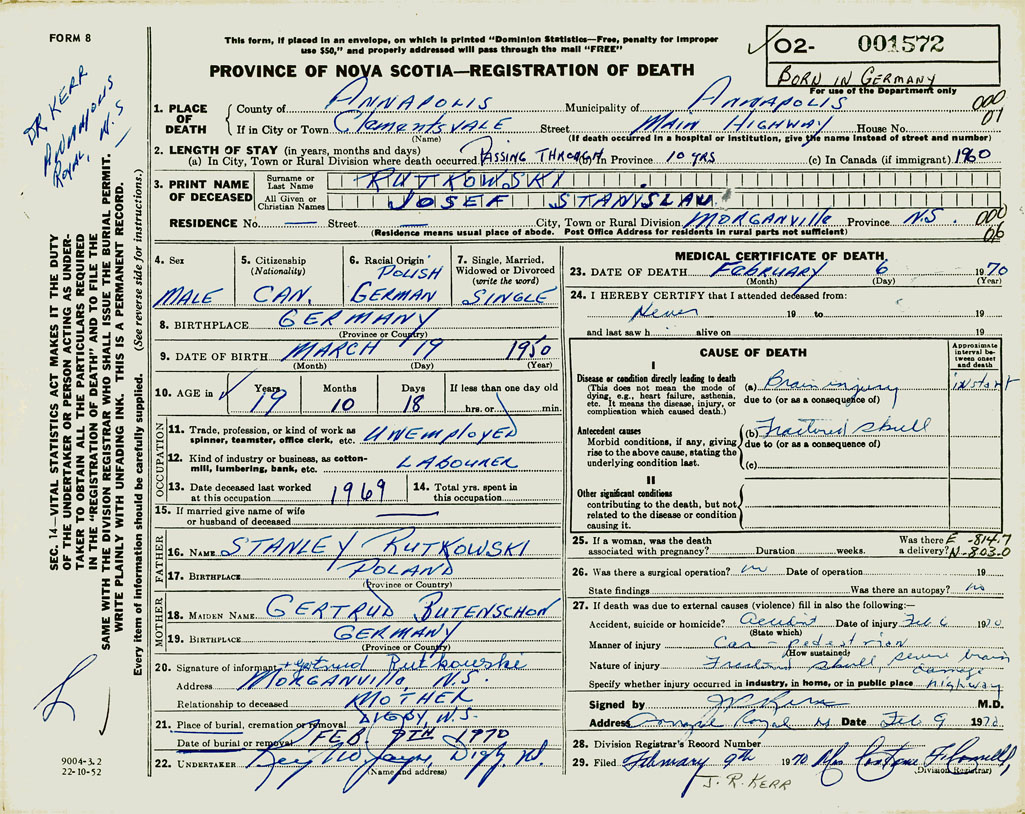 FORM 8
This form, if placed in an envelope, on which is printed "Dominion Statistics—Free, penalty for improper
use $50," and properly addressed will pass through the mail "FREE"
PROVINCE OF NOVA SCOTIA—REGISTRATION OF DEATH
02- 001572
BORN IN GERMANY
For use of the Department only
DR KERR
ANNAPOLIS
ROYAL, N.S
SEC. 14—VITAL STATISTICS ACT MAKES IT THE DUTY
OF THE UNDERTAKER OR PERSON ACTING AS UNDER-
TAKER TO OBTAIN ALL THE PARTICULARS REQUIRED
IN THE "REGISTRATION OF DEATH" AND TO FILE THE
SAME WITH THE DIVISION REGISTRAR WHO SHALL ISSUE THE BURIAL PERMIT.
WRITE PLAINLY WITH UNFADING INK. THIS IS A PERMANENT RECORD.
Every item of information should be carefully supplied. (See reverse side for instructions.)
9004-3.2
22-10-52
1. PLACE OF DEATH
County of ANNAPOLIS Municipality of ANNAPOLIS 000
If in City or Town Clementsvale Street MAIN HIGHWAY House No. 01
(Name) (If death occurred in a hospital or institution, give the name instead of street and number)
2. LENGTH OF STAY (in years, months and days)
(a) In City, Town or Rural Division where death occurred PASSING THROUGH (b) in Province 10 YRS (c) In Canada (if immigrant) 1960
3. PRINT NAME OF DECEASED
Surname or Last Name RUTKOWSKI
All Given or Christian Names JOSEF STANISLAU
RESIDENCE No. — Street City, Town or Rural Division MORGANVILLE Province N.S. 000
(Residence means usual place of abode. Post Office Address for residents in rural parts not sufficient) 06
4. Sex MALE
5. Citizenship (Nationality) CAN.
6. Racial Origin POLISH GERMAN
7. Single, Married, Widowed or Divorced (write the word) SINGLE
8. BIRTHPLACE GERMANY
(Province or Country)
9. DATE OF BIRTH MARCH 19 1950
(Month) (Day) (Year)
10. AGE in Years 19 Months 10 Days 18 If less than one day old hrs. or min.
OCCUPATION
11. Trade, profession, or kind of work as spinner, teamster, office clerk, etc. UNEMPLOYED
12. Kind of industry or business, as cotton-mill, lumbering, bank, etc. LABOURER
13. Date deceased last worked at this occupation 1969
14. Total yrs. spent in this occupation
15. If married give name of wife or husband of deceased —
FATHER
16. NAME STANLEY RUTKOWSKI
17. BIRTHPLACE POLAND
(Province or Country)
MOTHER
18. MAIDEN NAME GERTRUD BUTENSCHON
19. BIRTHPLACE GERMANY
(Province or Country)
20. Signature of informant Gertrud Rutkowski
Address MORGANVILLE, N.S.
Relationship to deceased MOTHER
21. Place of burial, cremation or removal DIGBY N.S.
Date of burial or removal FEB. 9TH 1970
22. UNDERTAKER Digby, N.S.
(Name and address)
MEDICAL CERTIFICATE OF DEATH
23. DATE OF DEATH FEBRUARY 6 1970
(Month) (Day) (Year)
24. I HEREBY CERTIFY that I attended deceased from:
Never 19 to 19
and last saw h alive on 19
CAUSE OF DEATH
Approximate interval between onset and death
I
Disease or condition directly leading to death
(This does not mean the mode of dying, e.g., heart failure, asthenia, etc. It means the disease, injury, or complication which caused death.)
(a) Brain injury instant
due to (or as a consequence of)
Antecedent causes
Morbid conditions, if any, giving rise to the above cause, stating the underlying condition last.
(b) Fractured skull
due to (or as a consequence of)
(c)
II
Other significant conditions
contributing to the death, but not related to the disease or condition causing it.
25. If a woman, was the death associated with pregnancy? Duration weeks. Was there a delivery?
E-814.7
N-803.0
26. Was there a surgical operation? no Date of operation 19
State findings Was there an autopsy? no
27. If death was due to external causes (violence) fill in also the following:—
Accident, suicide or homicide? Accident Date of injury Feb 6 1970
(State which)
Manner of injury Car - pedestrian
(How sustained)
Nature of injury Fractured skull severe brain damage
Specify whether injury occurred in industry, in home, or in public place highway
Signed by Kerr M.D.
Address Annapolis Royal NS Date Feb 9 1970.
28. Division Registrar's Record Number
29. Filed February 9th 1970 Mrs
(Division Registrar)
J. R. KERR